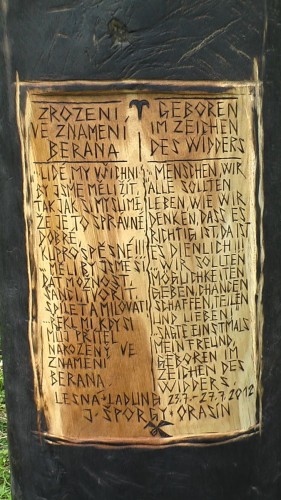 ZROZENI
VE ZNAMENI
BERANA
LIDÉ, MY VŠICHNI
BY JSME MĚLI ŽÍT,
TAK JAK SI MYSLÍME,
ŽE JE TO SPRÁVNÉ,
DOBRÉ,
KU PROSPĚŠNÉ!!!
MĚLI BY JSME SI
DÁT MOŽNOST,
ŠANCI, TVOŘIT,
SDÍLET A MILOVAT!
ŘEKL MI, KDYSI
MŮJ PŘÍTEL
NAROZENÝ VE
ZNAMENÍ
BERANA.
GEBOREN
IM ZEICHEN
DES WIDDERS
MENSCHEN, WIR
ALLE SOLLTEN
LEBEN WIE WIR
DENKEN, DASS ES
RICHTIG IST, DA IST
ES DIENLICH!!!
WIR SOLLTEN
MÖGLICHKEITEN
GEBEN, CHANCEN
SCHAFFEN, TEILEN
UND LIEBEN!
SAGTE EINSTMALS
MEIN FREUND,
GEBOREN IM
ZEICHEN DES
WIDDERS.
LESNÁ + LADUNG 23.7.-27.7.2012
J. ŠPORGY · ORASIN